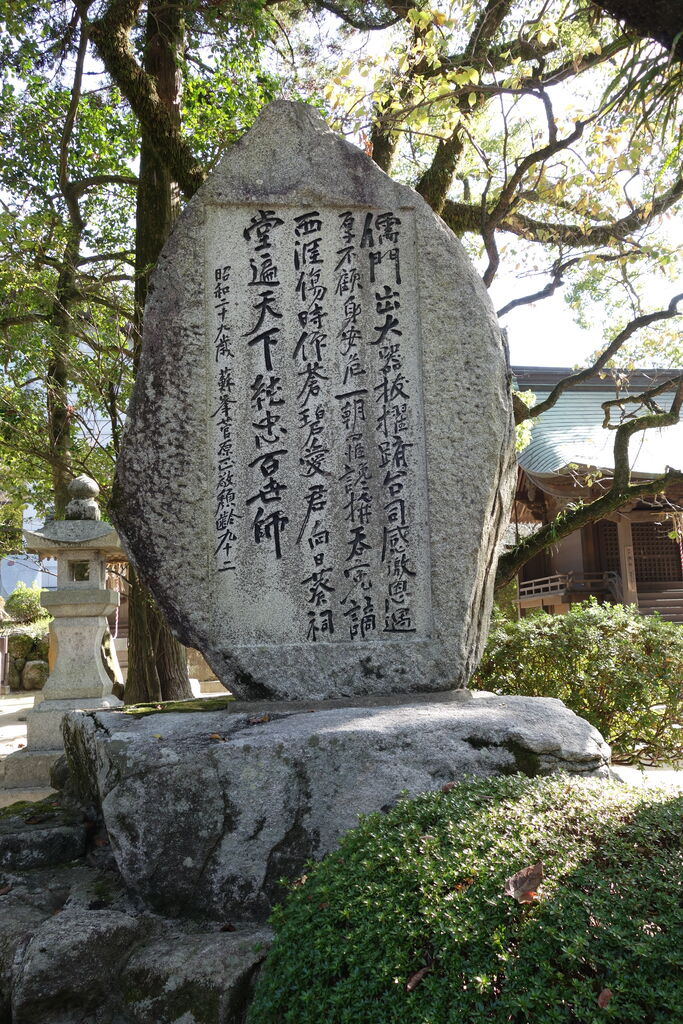 儒門出大器抜擢躋台司感激恩遇
厚不顧身安危一朝罹讒誣撫呑寃謫
西涯傷時仰蒼碧愛君向日葵祠
堂遍天下純忠百世師
昭和二十九歳 蘇峯菅原正敬頽齢九十二